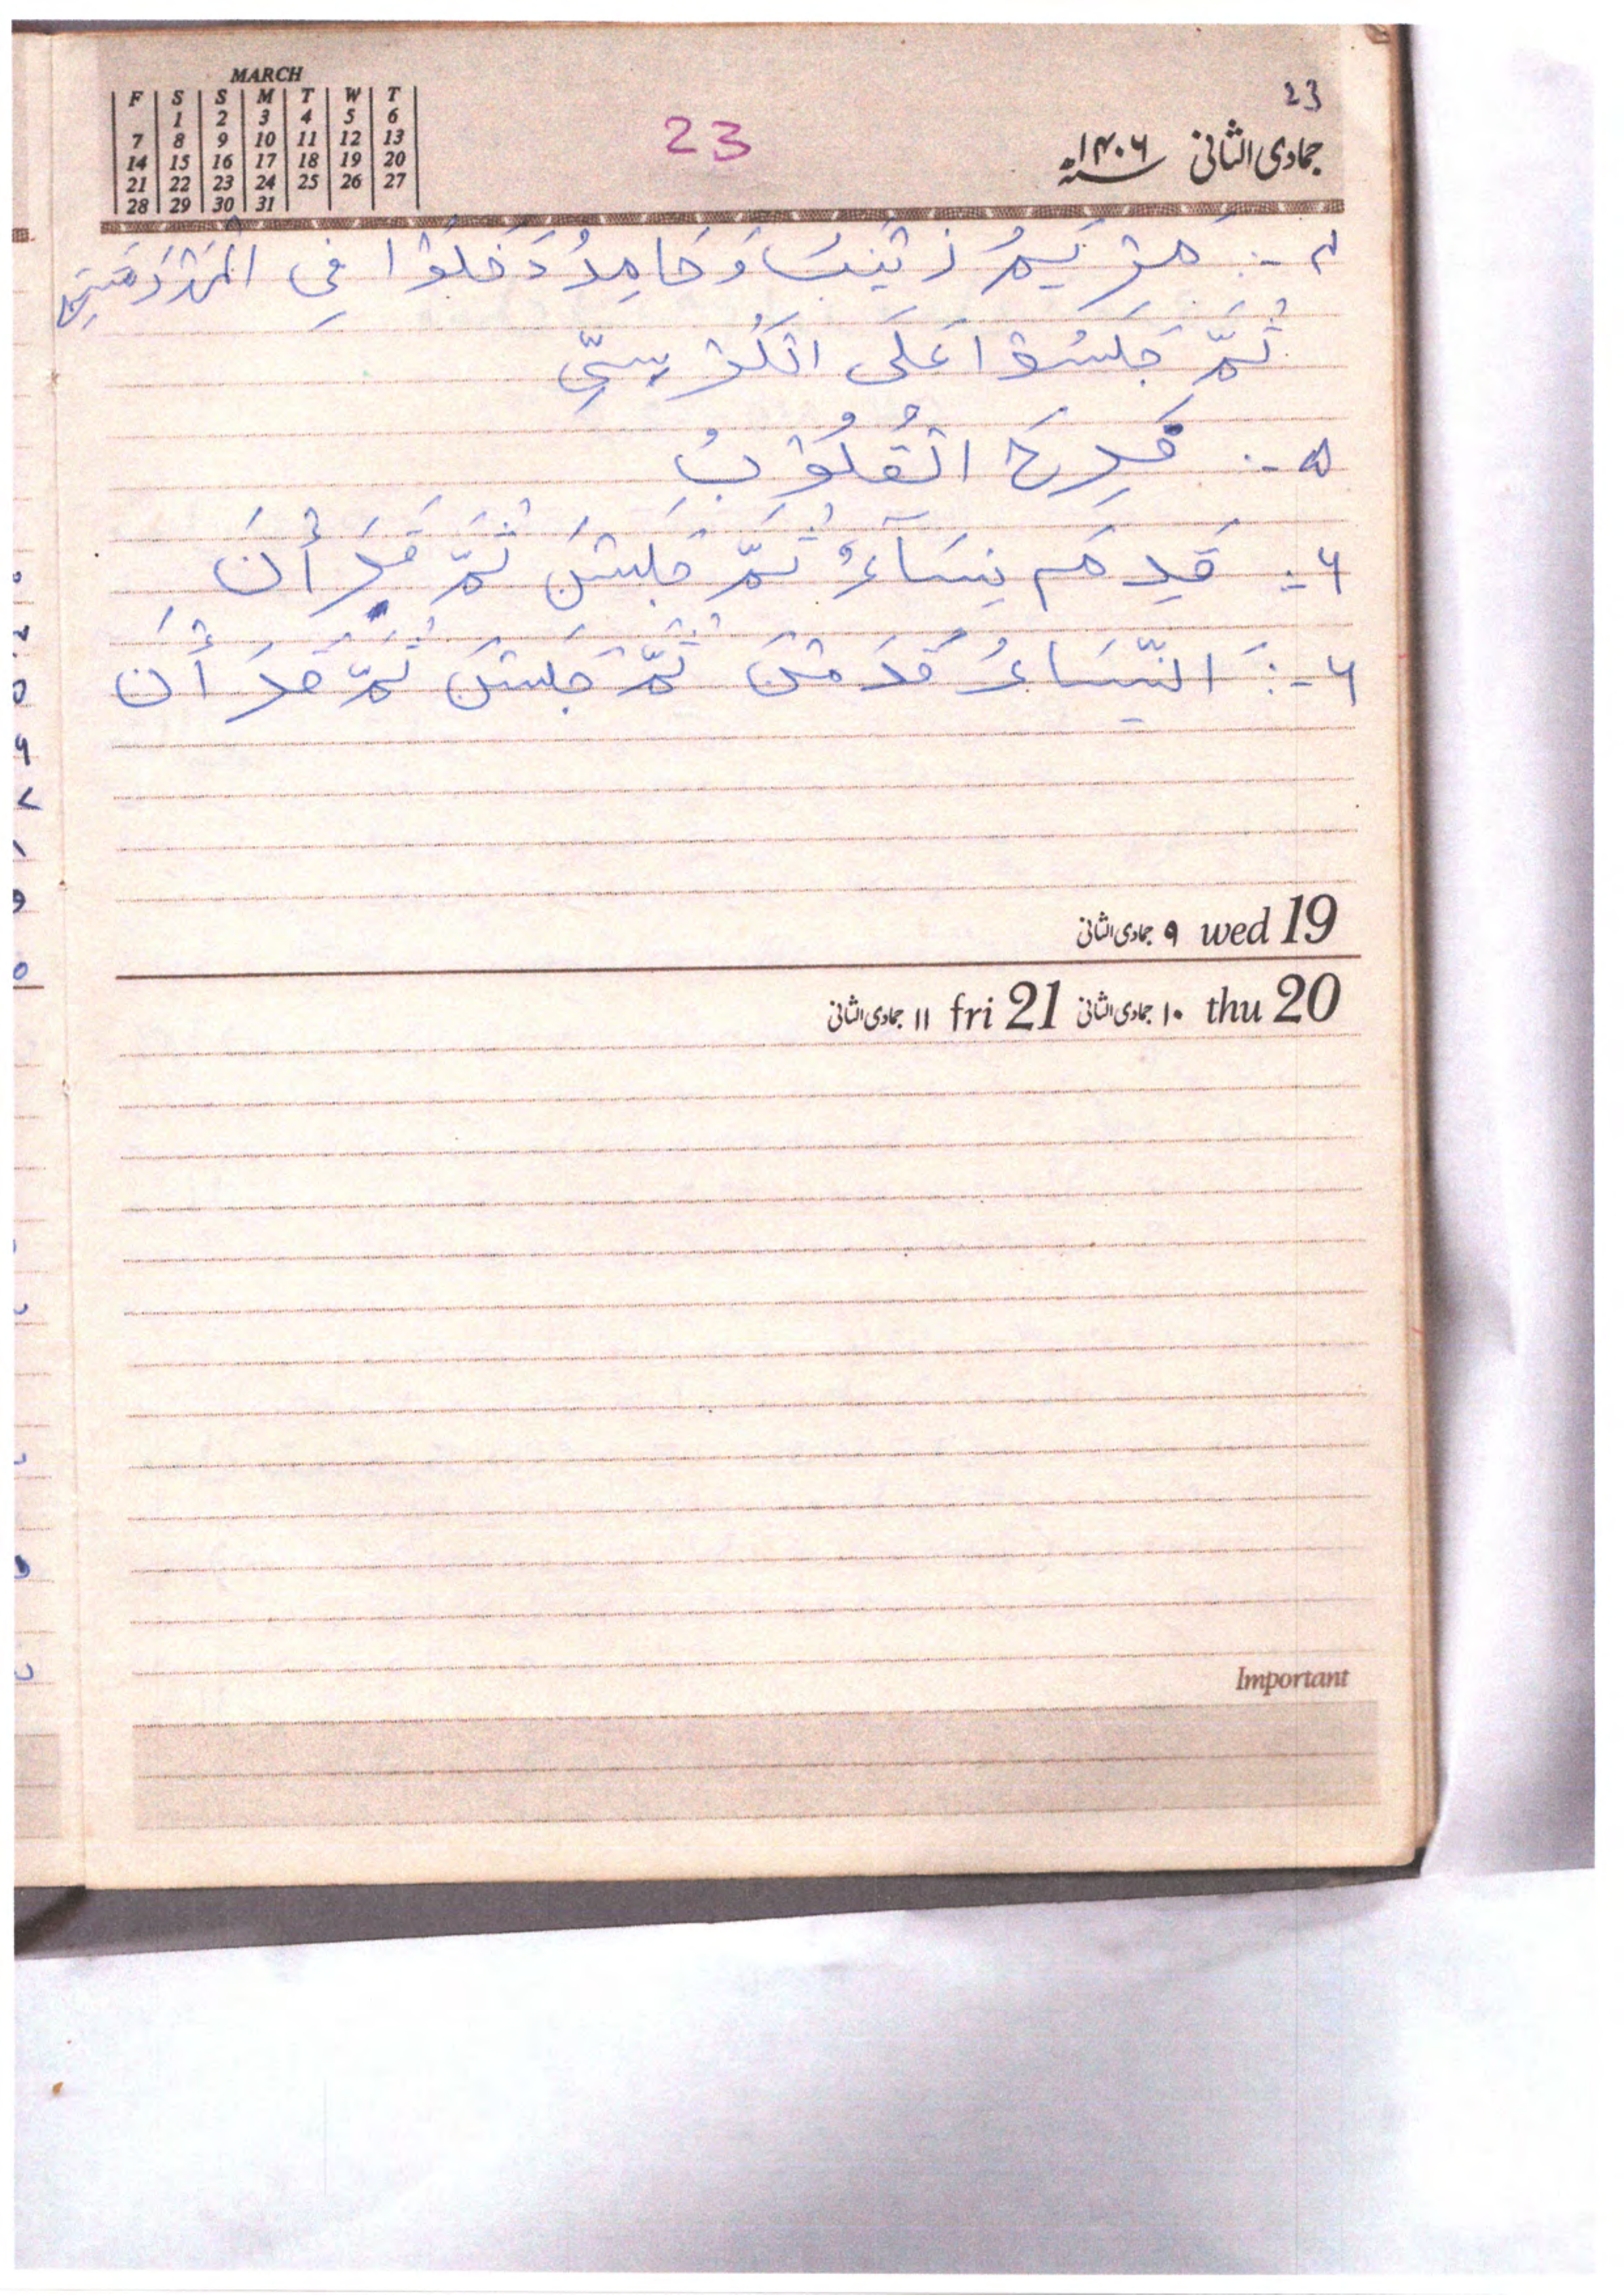 MARCH
F S S M T W T
1 2 3 4 5 6
7 8 9 10 11 12 13
14 15 16 17 18 19 20
21 22 23 24 25 26 27
28 29 30 31
23
23
جمادی الثانی ۱۴۰۶
۴ -: مَرْيَمُ زَيْنَبُ وَ حَامِدُ دَخَلُوْا فِي الْمَدْرَسَةِ
ثُمَّ جَلَسُوْا عَلَى الْكُرْسِيِّ
۵ -: فَرِحَ الْقُلُوْبُ
۶ -: قَدِمَ نِسَآءٌ ثُمَّ جَلَسْنَ ثُمَّ قَرَأْنَ
۶ -: النِّسَاءُ قَدِمْنَ ثُمَّ جَلَسْنَ ثُمَّ قَرَأْنَ
۹ جمادی الثانی wed 19
۱۱ جمادی الثانی fri 21 ۱۰ جمادی الثانی thu 20
Important